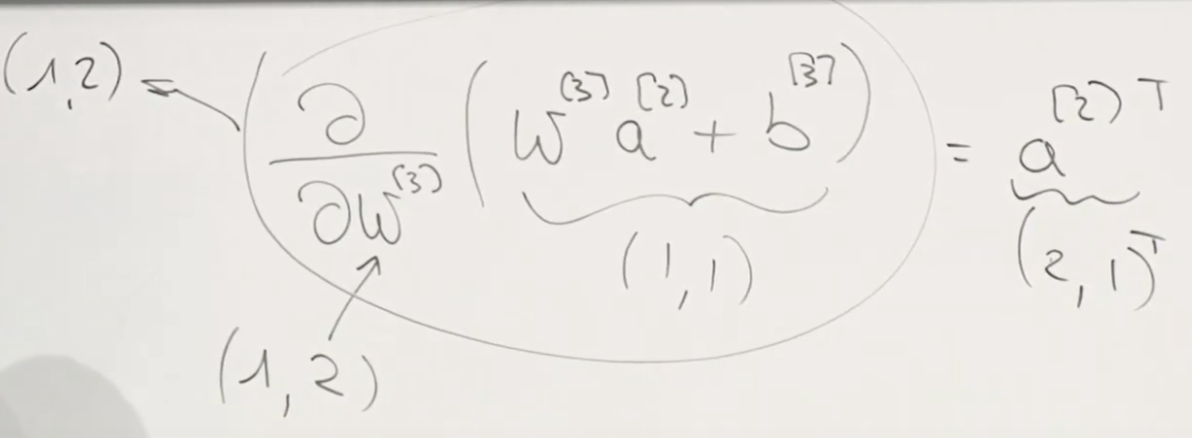 (1,2) ∂/∂w^[3] (w^[3] a^[2] + b^[3]) = a^[2]T
(1,1) (2,1)^T
(1,2)